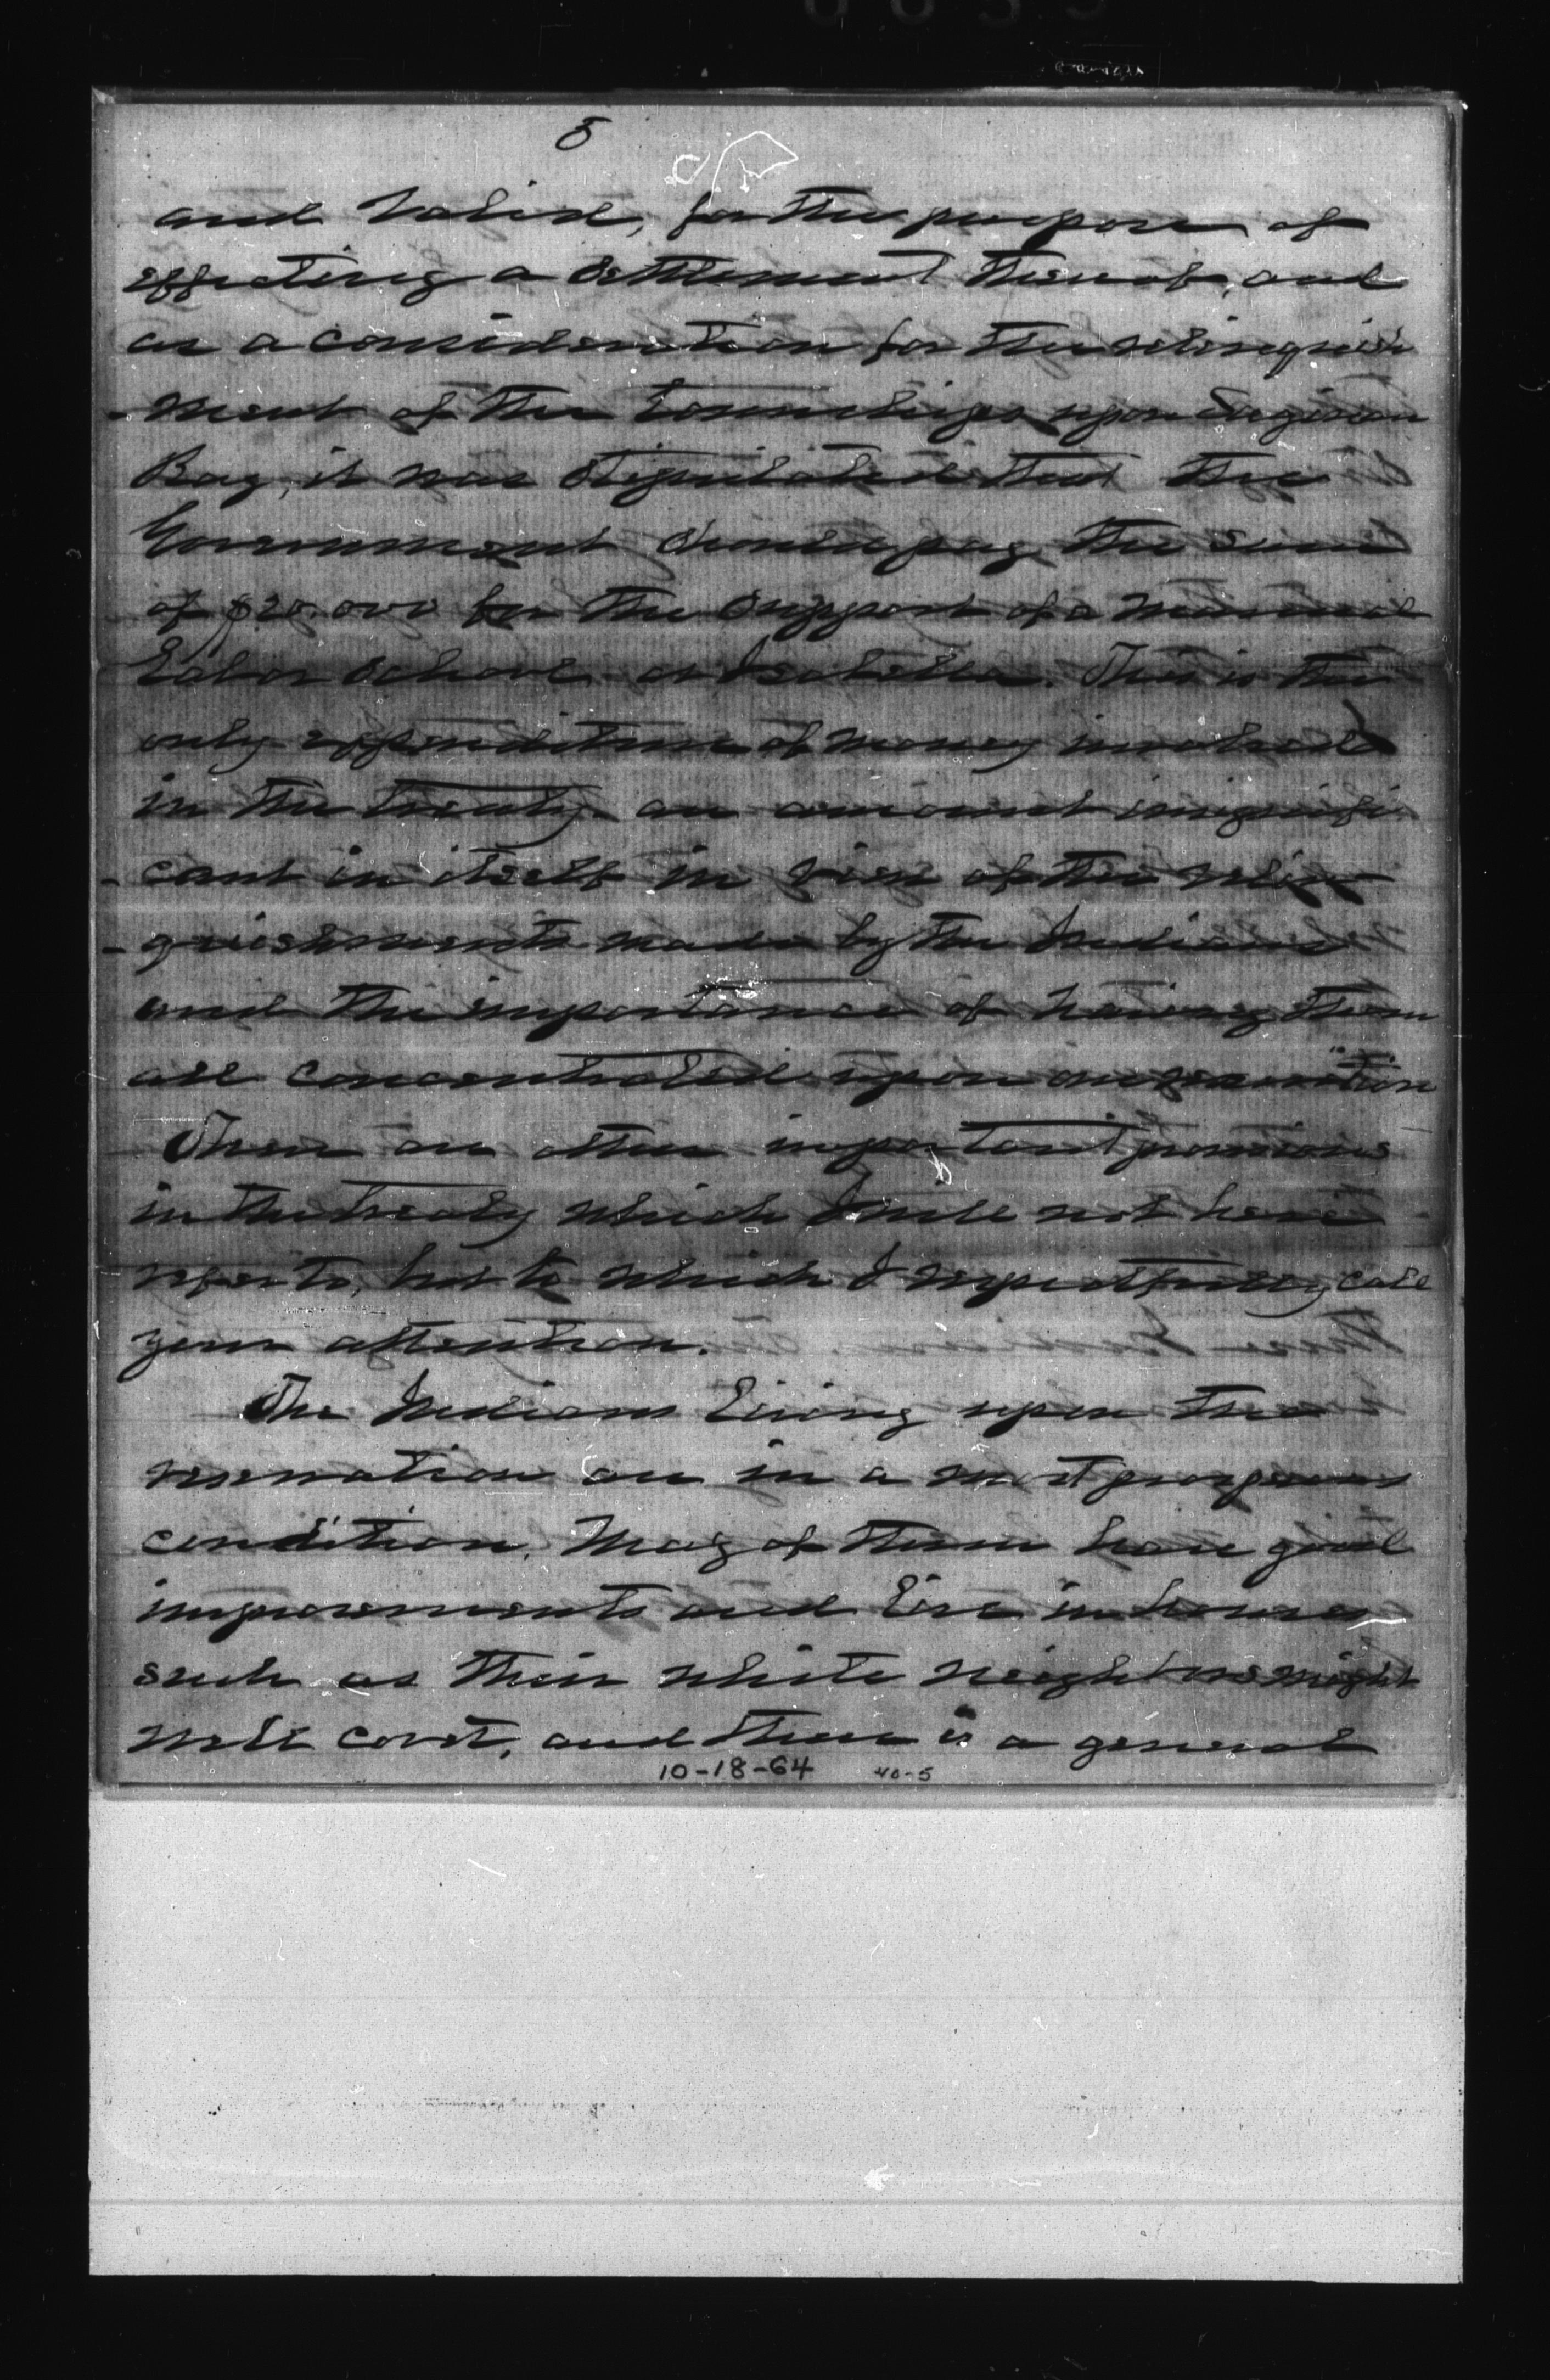 5
and valid, for the purpose of
effecting a settlement thereof, and
as a consideration for the relinquish
-ment of the townships upon Saginaw
Bay, it was stipulated that the
Government should pay the sum
of $20.000 for the support of a manual
Labor School at Isabella. This is the
only expenditure of money involved
in the treaty, an amount insignifi
-cant in itself in view of the relin
-quishments made by the Indians
and the importance of having them
all concentrated upon one reservation
There are other important provisions
in the treaty which I will not here
refer to, but to which I respectfully call
your attention.
The Indians living upon the
reservation are in a most prosperous
condition. Many of them have good
improvements and live in houses
such as their white neighbors might
well covet, and there is a general
10-18-64 40-5